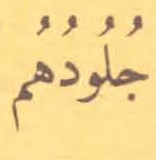 جُلُودُهُم